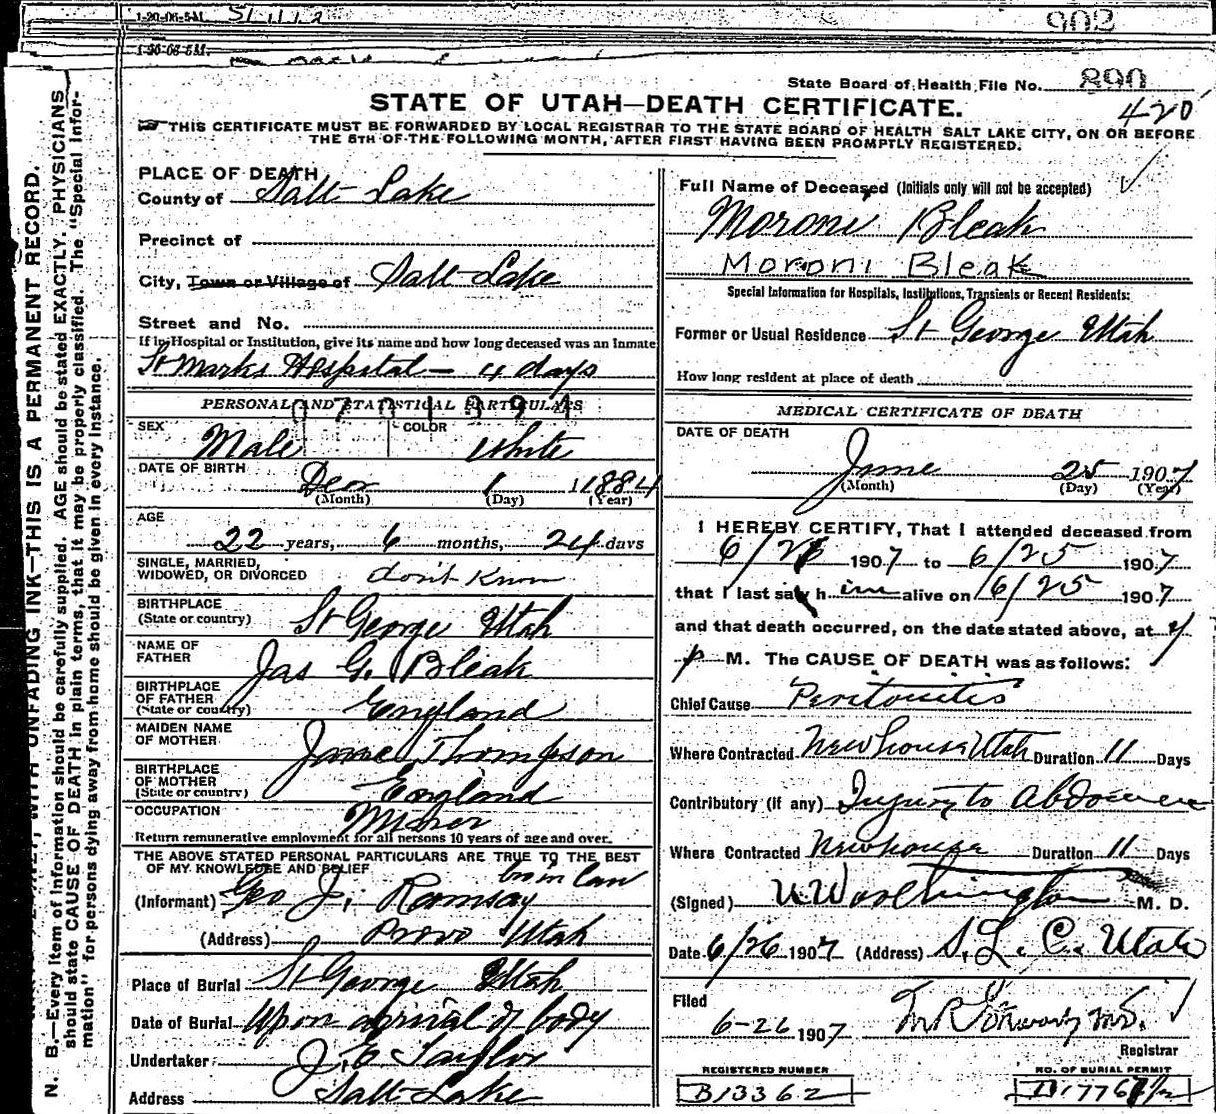 1-20-06-5M.
902
1-20-06-5M.
State Board of Health File No. 890
STATE OF UTAH—DEATH CERTIFICATE.
420
THIS CERTIFICATE MUST BE FORWARDED BY LOCAL REGISTRAR TO THE STATE BOARD OF HEALTH SALT LAKE CITY, ON OR BEFORE
THE 5TH OF THE FOLLOWING MONTH, AFTER FIRST HAVING BEEN PROMPTLY REGISTERED.
N. B.—Every item of information should be carefully supplied. AGE should be stated EXACTLY. PHYSICIANS
should state CAUSE OF DEATH in plain terms, that it may be properly classified. The "Special Infor-
mation" for persons dying away from home should be given in every instance.
WITH UNFADING INK—THIS IS A PERMANENT RECORD.
PLACE OF DEATH
County of Salt Lake
Precinct of
City, Town or Village of Salt Lake
Street and No.
If in Hospital or Institution, give its name and how long deceased was an inmate
St Marks Hospital — 4 days
PERSONAL AND STATISTICAL PARTICULARS
SEX Male COLOR White
DATE OF BIRTH Dec 1 1884
(Month) (Day) (Year)
AGE
22 years, 6 months, 24 days
SINGLE, MARRIED,
WIDOWED, OR DIVORCED don't Know
BIRTHPLACE
(State or country) St George Utah
NAME OF
FATHER Jas G. Bleak
BIRTHPLACE
OF FATHER
(State or country) England
MAIDEN NAME
OF MOTHER Jane Thompson
BIRTHPLACE
OF MOTHER
(State or country) England
OCCUPATION Miner
Return remunerative employment for all persons 10 years of age and over.
THE ABOVE STATED PERSONAL PARTICULARS ARE TRUE TO THE BEST
OF MY KNOWLEDGE AND BELIEF
bro in law
(Informant) Geo J. Ramsay
(Address) Provo Utah
Place of Burial St George Utah
Date of Burial Upon arrival of body
Undertaker J. E Taylor
Address Salt Lake
Full Name of Deceased (Initials only will not be accepted)
Moroni Bleak
Moroni Bleak
Special Information for Hospitals, Institutions, Transients or Recent Residents:
Former or Usual Residence St George Utah
How long resident at place of death
MEDICAL CERTIFICATE OF DEATH
DATE OF DEATH
June 25 1907
(Month) (Day) (Year)
I HEREBY CERTIFY, That I attended deceased from
6/21 1907 to 6/25 1907
that I last saw him alive on 6/25 1907
and that death occurred, on the date stated above, at 4
p M. The CAUSE OF DEATH was as follows:
Chief Cause Peritonitis
Where Contracted Newhouse Utah Duration 11 Days
Contributory (if any) Injury to Abdomen
Where Contracted Newhouse Duration 11 Days
(Signed) U Worthington M. D.
Date 6/26 1907 (Address) S. L. C. Utah
Filed
6-26 1907
Registrar
REGISTERED NUMBER
B13362
NO. OF BURIAL PERMIT